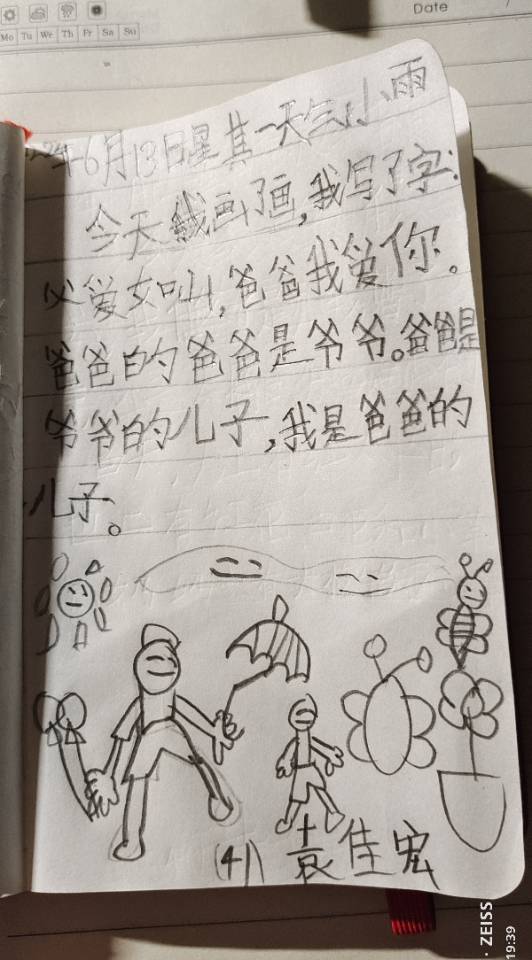 Date
Mo Tu We Th Fr Sa Su
24年6月13日星其一天气小雨
今天我画了画,我写了字:
父爱女山,爸爸我爱你。
爸爸的爸爸是爷爷。爸爸是
爷爷的儿子,我是爸爸的
儿子。
(4) 袁佳宏
ZEISS
19:39